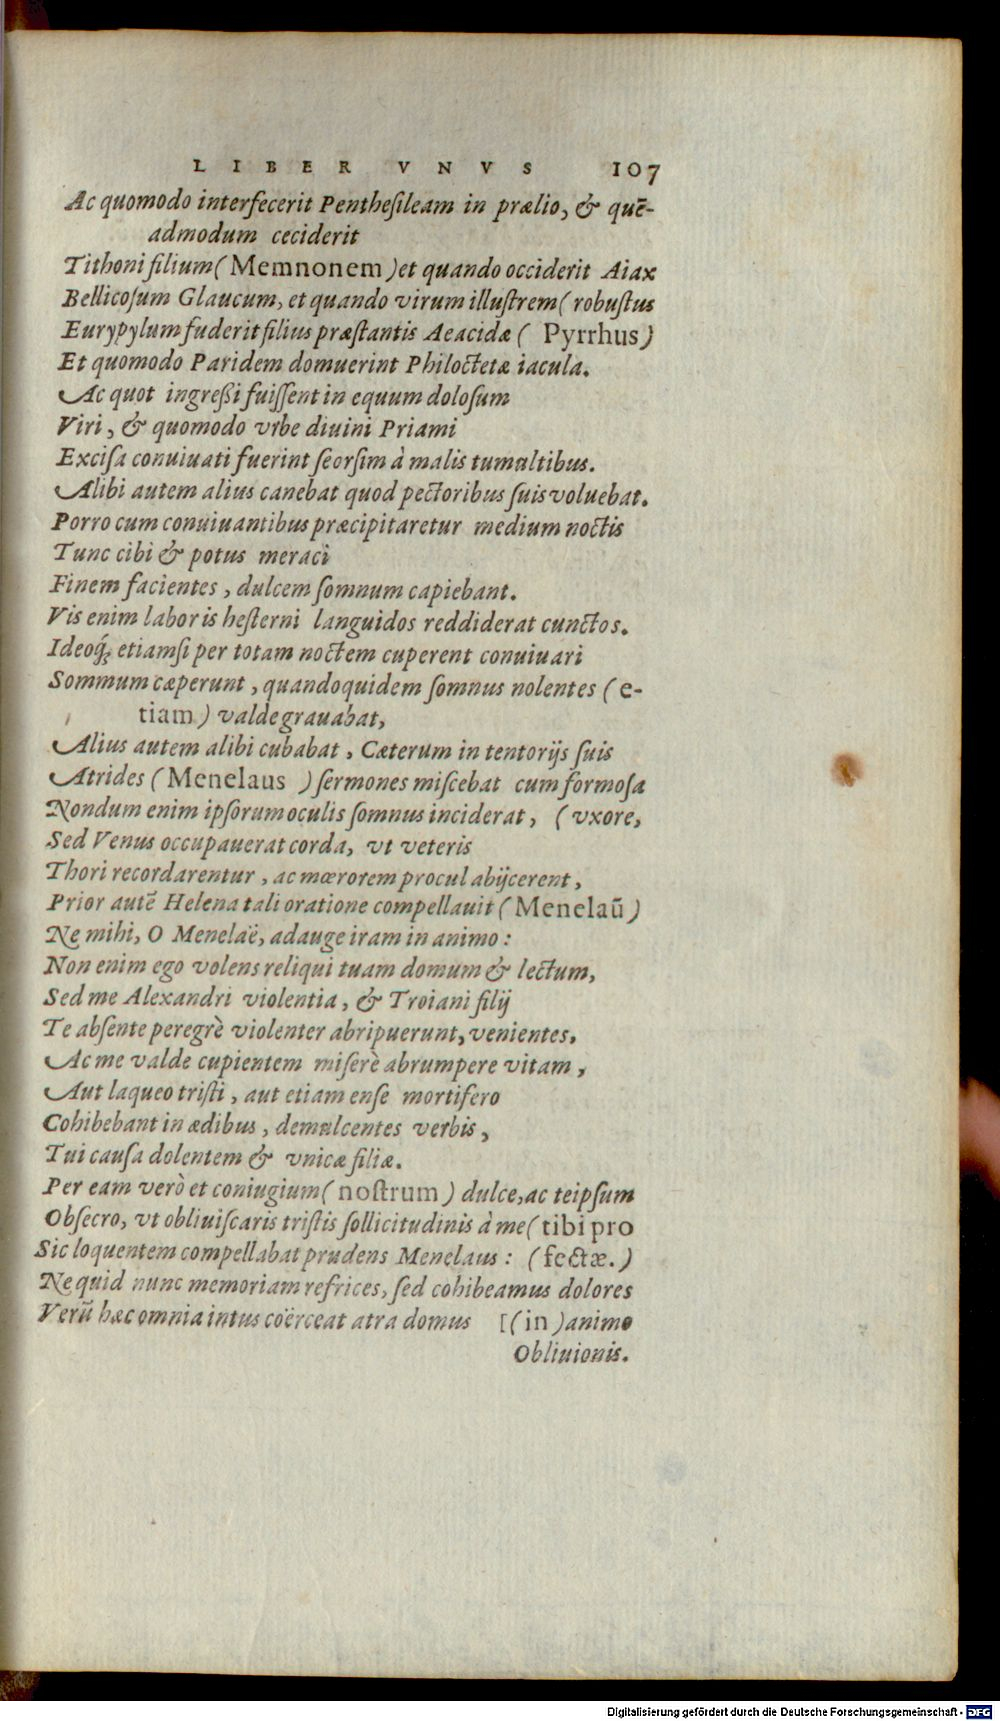 LIBER VNVS 107
Ac quomodo interfecerit Pentheſileam in prælio, & quē-
admodum ceciderit
Tithoni filium (Memnonem) et quando occiderit Aiax
Bellicoſum Glaucum, et quando virum illuſtrem (robuſtus
Eurypylum fuderit filius præſtantis Aeacidæ ( Pyrrhus)
Et quomodo Paridem domuerint Philoctetæ iacula.
Ac quot ingreßi fuiſſent in equum doloſum
Viri, & quomodo vrbe diuini Priami
Exciſa conuiuati fuerint ſeorſim à malis tumultibus.
Alibi autem alius canebat quod pectoribus ſuis voluebat.
Porro cum conuiuantibus præcipitaretur medium noctis
Tunc cibi & potus meraci
Finem facientes, dulcem ſomnum capiebant.
Vis enim laboris heſterni languidos reddiderat cunctos.
Ideoq́; etiamſi per totam noctem cuperent conuiuari
Sommum cæperunt, quandoquidem ſomnus nolentes (e-
tiam) valde grauabat,
Alius autem alibi cubabat, Cæterum in tentorijs ſuis
Atrides (Menelaus ) ſermones miſcebat cum formoſa
Nondum enim ipſorum oculis ſomnus inciderat, (vxore,
Sed Venus occupauerat corda, vt veteris
Thori recordarentur, ac mœrorem procul abijcerent,
Prior autē Helena tali oratione compellauit (Menelaū)
Ne mihi, O Menelaë, adauge iram in animo:
Non enim ego volens reliqui tuam domum & lectum,
Sed me Alexandri violentia, & Troiani filij
Te abſente peregrè violenter abripuerunt, venientes.
Ac me valde cupientem miſerè abrumpere vitam,
Aut laqueo triſti, aut etiam enſe mortifero
Cohibebant in ædibus, demulcentes verbis,
Tui cauſa dolentem & vnicæ filiæ.
Per eam verò et coniugium (noſtrum) dulce, ac teipſum
Obſecro, vt obliuiſcaris triſtis ſollicitudinis à me (tibi pro
Sic loquentem compellabat prudens Menelaus: (fectæ.)
Ne quid nunc memoriam refrices, ſed cohibeamus dolores
Verū hæc omnia intus coërceat atra domus [(in) animo
Obliuionis.
Digitalisierung gefördert durch die Deutsche Forschungsgemeinschaft - DFG